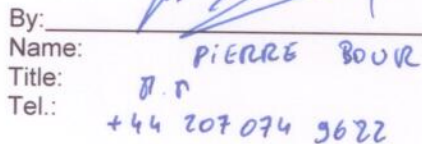 By:
Name: PiERRE BOUR
Title:
Tel.: +44 207 074 9622